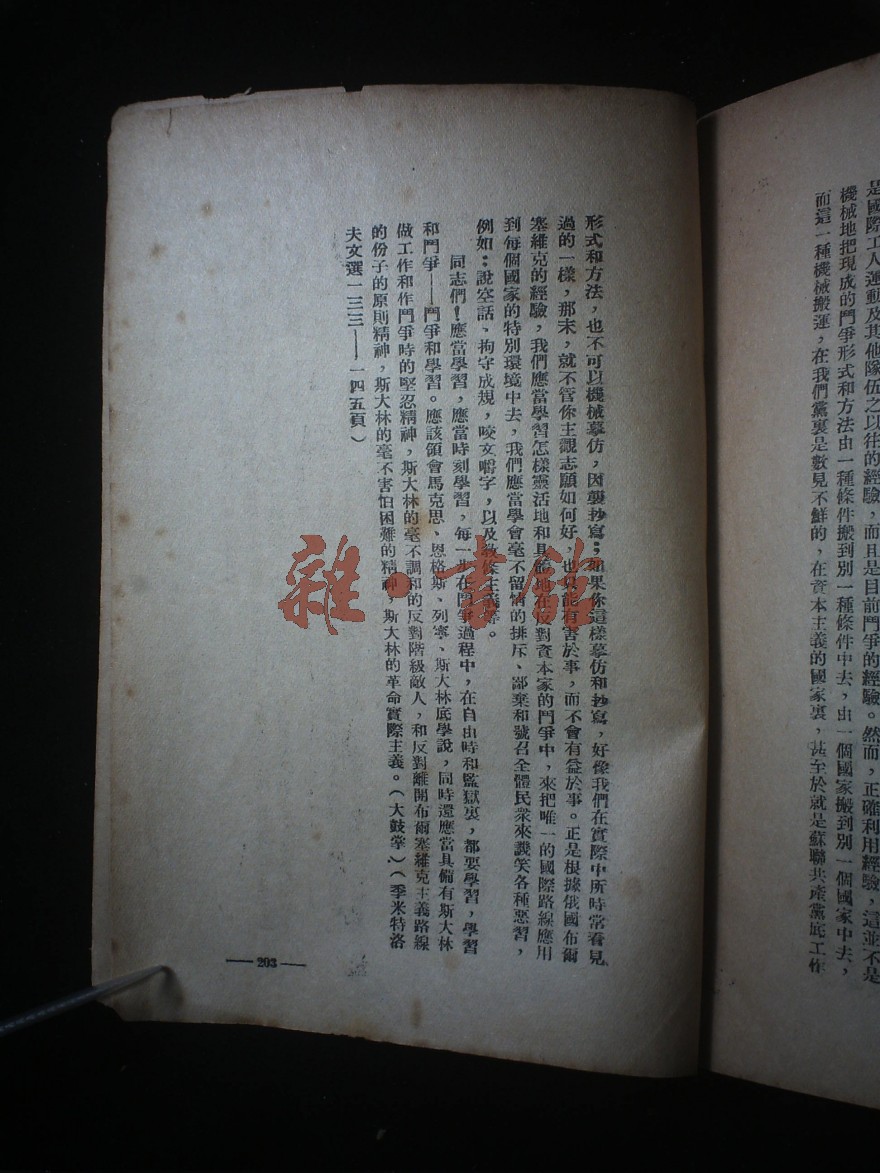 是國際工人運動及其他隊伍之以往的經驗，而且是目前鬥爭的經驗。然而，正確利用經驗，這並不是
機械地把現成的鬥爭形式和方法由一種條件搬到別一種條件中去，由一個國家搬到別一個國家中去，
而這一種機械搬運，在我們黨裏是數見不鮮的，在資本主義的國家裏，甚至於就是蘇聯共產黨底工作
形式和方法，也不可以機械摹仿，因襲抄寫；如果你這樣摹仿和抄寫，好像我們在實際中所時常看見
過的一樣，那末，就不管你主觀志願如何好，也只能有害於事，而不會有益於事。正是根據俄國布爾
塞維克的經驗，我們應當學習怎樣靈活地和具體地在反對資本家的鬥爭中，來把唯一的國際路線應用
到每個國家的特別環境中去，我們應當學會毫不留情的排斥、鄙棄和號召全體民衆來譏笑各種惡習，
例如：說空話，拘守成規，咬文嚼字，以及教條主義等。
同志們！應當學習，應當時刻學習，每一步在鬥爭過程中，在自由時和監獄裏，都要學習，學習
和鬥爭——鬥爭和學習。應該領會馬克思、恩格斯、列寧、斯大林底學說，同時還應當具備有斯大林
做工作和作鬥爭時的堅忍精神，斯大林的毫不調和的反對階級敵人，和反對離開布爾塞維克主義路線
的份子的原則精神，斯大林的毫不害怕困難的精神，斯大林的革命實際主義。（大鼓掌）（季米特洛
夫文選一三三——一四五頁）
—— 203 ——
雜·書館